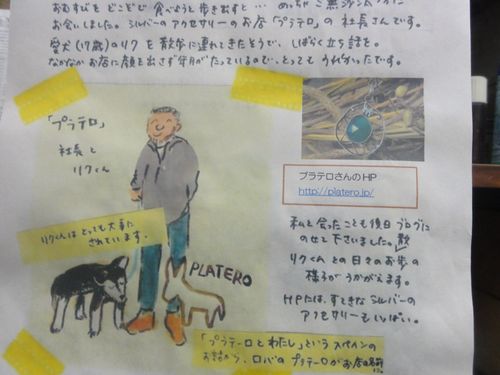 おむすびをどこぞで食べようと歩き出すと… めっちゃご無沙汰
お会いしました。シルバーのアクセサリーのお店「プラテロ」の社長さんです。
愛犬(17歳)のリクを散歩に連れてきたそうで、しばらく立ち話を。
なかなかお店に顔を出さず年月がたっているので、とってもうれしかったです。
「プラテロ」
社長と
リクくん
リクくんはとっても大事に
されています。
PLATERO
「プラテーロとわたし」という スペインの
お話から、ロバのプラテーロがお店の名前に。
プラテロさんの HP
http://platero.jp/
私と会ったことも後日ブログに
のせて下さいました。
リクくんとの日々のお散歩の
様子がうかがえます。
HPには、すてきなシルバーの
アクセサリーもいっぱい。